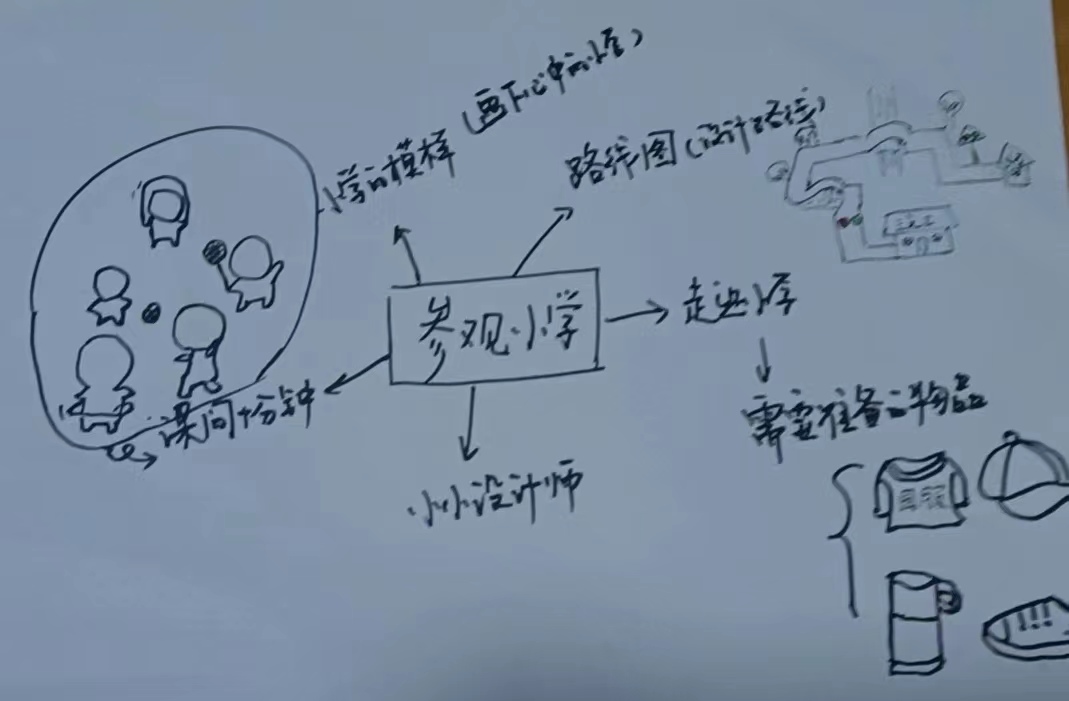 小学的模样（画下心中的小学）
路线图（设计路线）
参观小学
走进小学
课间十分钟
需要准备的物品
小小设计师
园服